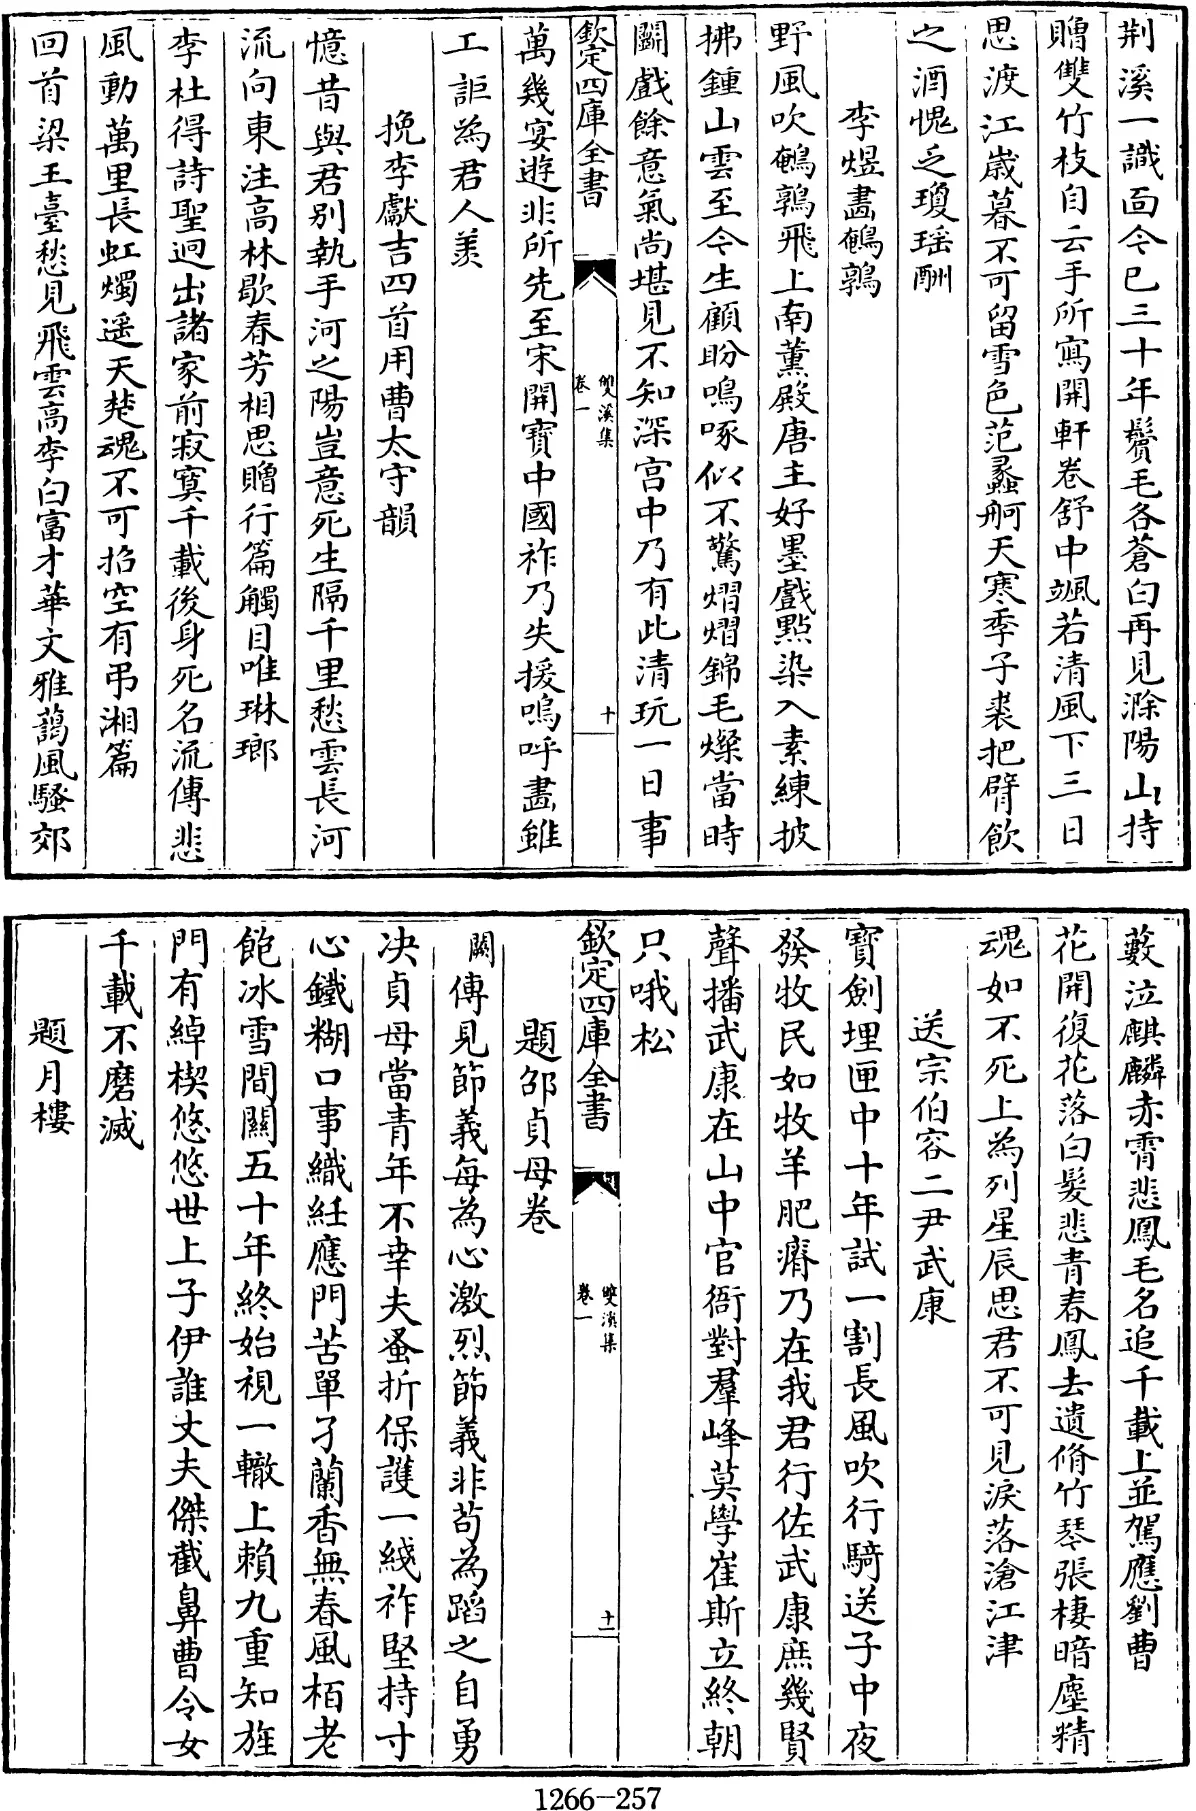 荆溪一識面今已三十年鬢毛各蒼白再見滁陽山持
贈雙竹枝自云手所寫開軒卷舒中颯若清風下三日
思渡江歲暮不可留雪色范蠡舸天寒季子裘把臂飲
之酒愧乏瓊瑶酬
李煜畫鵪鶉
野風吹鵪鶉飛上南薰殿唐主好墨戲㸃染入素練披
拂鍾山雲至今生顧盼鳴啄似不驚熠熠錦毛燦當時
鬭戲餘意氣尚堪見不知深宫中乃有此清玩一日事
欽定四庫全書
雙溪集
卷一
十
萬幾宴遊非所先至宋開寶中國祚乃失援嗚呼畫雖
工詎為君人羡
挽李獻吉四首用曹太守韻
憶昔與君别執手河之陽豈意死生隔千里愁雲長河
流向東注高林歇春芳相思贈行篇觸目唯琳瑯
李杜得詩聖迥出諸家前寂寞千載後身死名流傳悲
風動萬里長虹燭遥天楚魂不可招空有弔湘篇
回首梁王臺愁見飛雲高李白富才華文雅藹風騷郊
藪泣麒麟赤霄悲鳳毛名追千載上並駕應劉曹
花開復花落白髮悲青春鳳去遺脩竹琴張棲暗塵精
魂如不死上為列星辰思君不可見淚落滄江津
送宗伯容二尹武康
寶劍埋匣中十年試一割長風吹行騎送子中夜
發牧民如牧羊肥瘠乃在我君行佐武康庶幾賢
聲播武康在山中官衙對羣峰莫學崔斯立終朝
只哦松
欽定四庫全書
雙溪集
卷一
十一
題邵貞母卷
闕傳見節義每為心激烈節義非苟為蹈之自勇
决貞母當青年不幸夫蚤折保護一綫祚堅持寸
心鐵糊口事織絍應門苦單孑蘭香無春風栢老
飽冰雪間關五十年終始視一轍上賴九重知旌
門有綽楔悠悠世上子伊誰丈夫傑截鼻曹令女
千載不磨滅
題月樓
1266-257